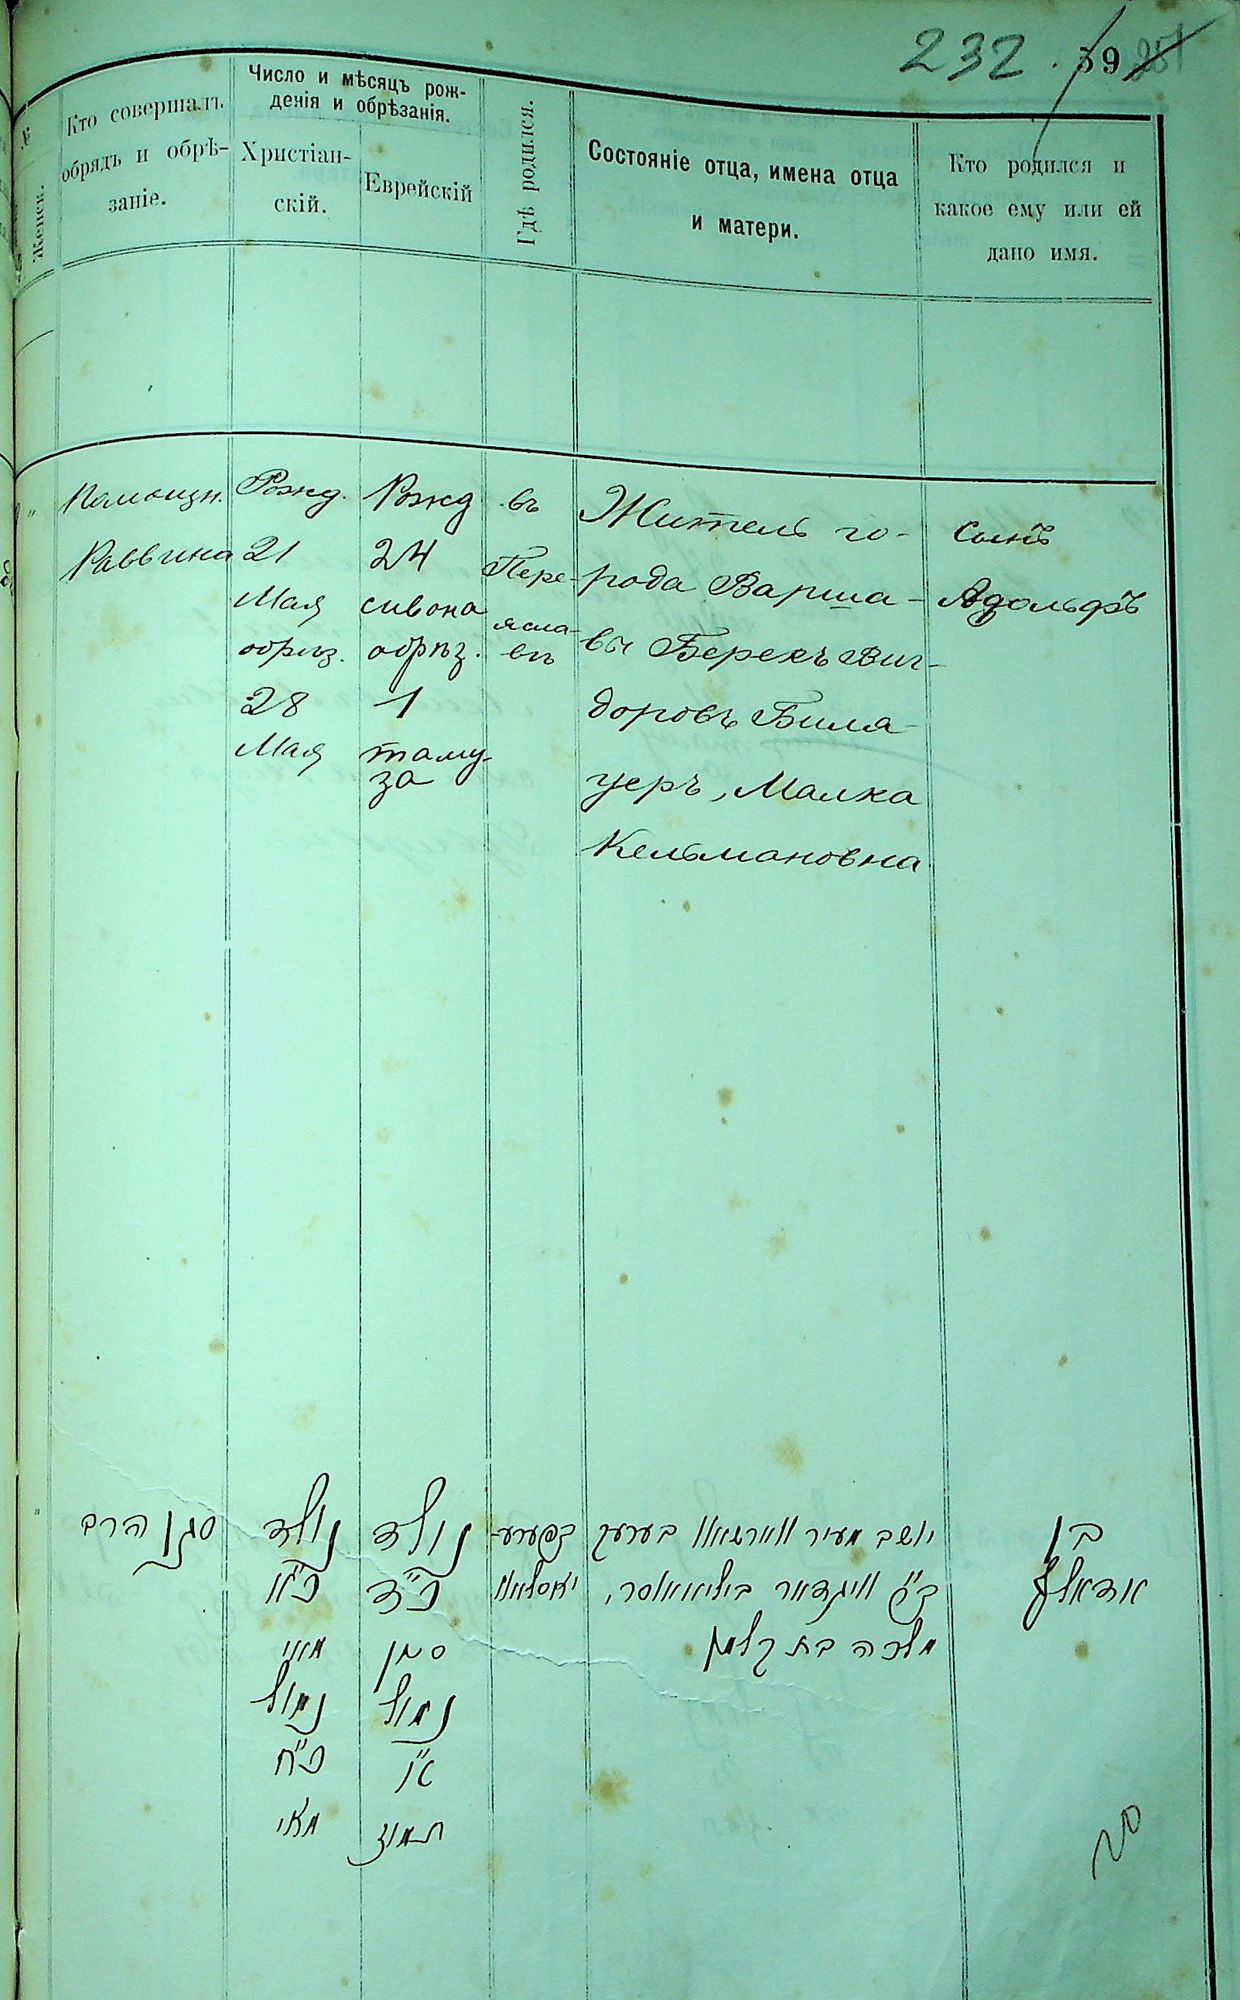 232 . 39 251
№
Женск.
Кто совершалъ
обрядъ и обрѣ-
заніе.
Число и мѣсяцъ рож-
денія и обрѣзанія.
Христіан-
скій.
Еврейскій
Гдѣ родился.
Состояніе отца, имена отца
и матери.
Кто родился и
какое ему или ей
дано имя.
Помощн.
Раввина
Рожд.
21
Мая
обрѣз.
28
Мая
Рожд
24
сивона
обрѣз.
1
таму-
за
въ
Пере-
ясла-
вѣ
Житель го-
рода Варша-
вы Берекъ Виг-
доровъ Биля-
уеръ, Малка
Кельмановна
Сынъ
Адольфъ
סגן הרב
נולד
כ״א
מאי
נמול
כ״ח
מאי
נולד
כ״ד
סיון
נמול
א״
תמוז
בפערע-
יאסלאוו
יושב מעיר ווארשאווא בערעק
ב״ר וויגדאר ביליאואוער,
מלכה בת קלמן
בן
אדאלף
20